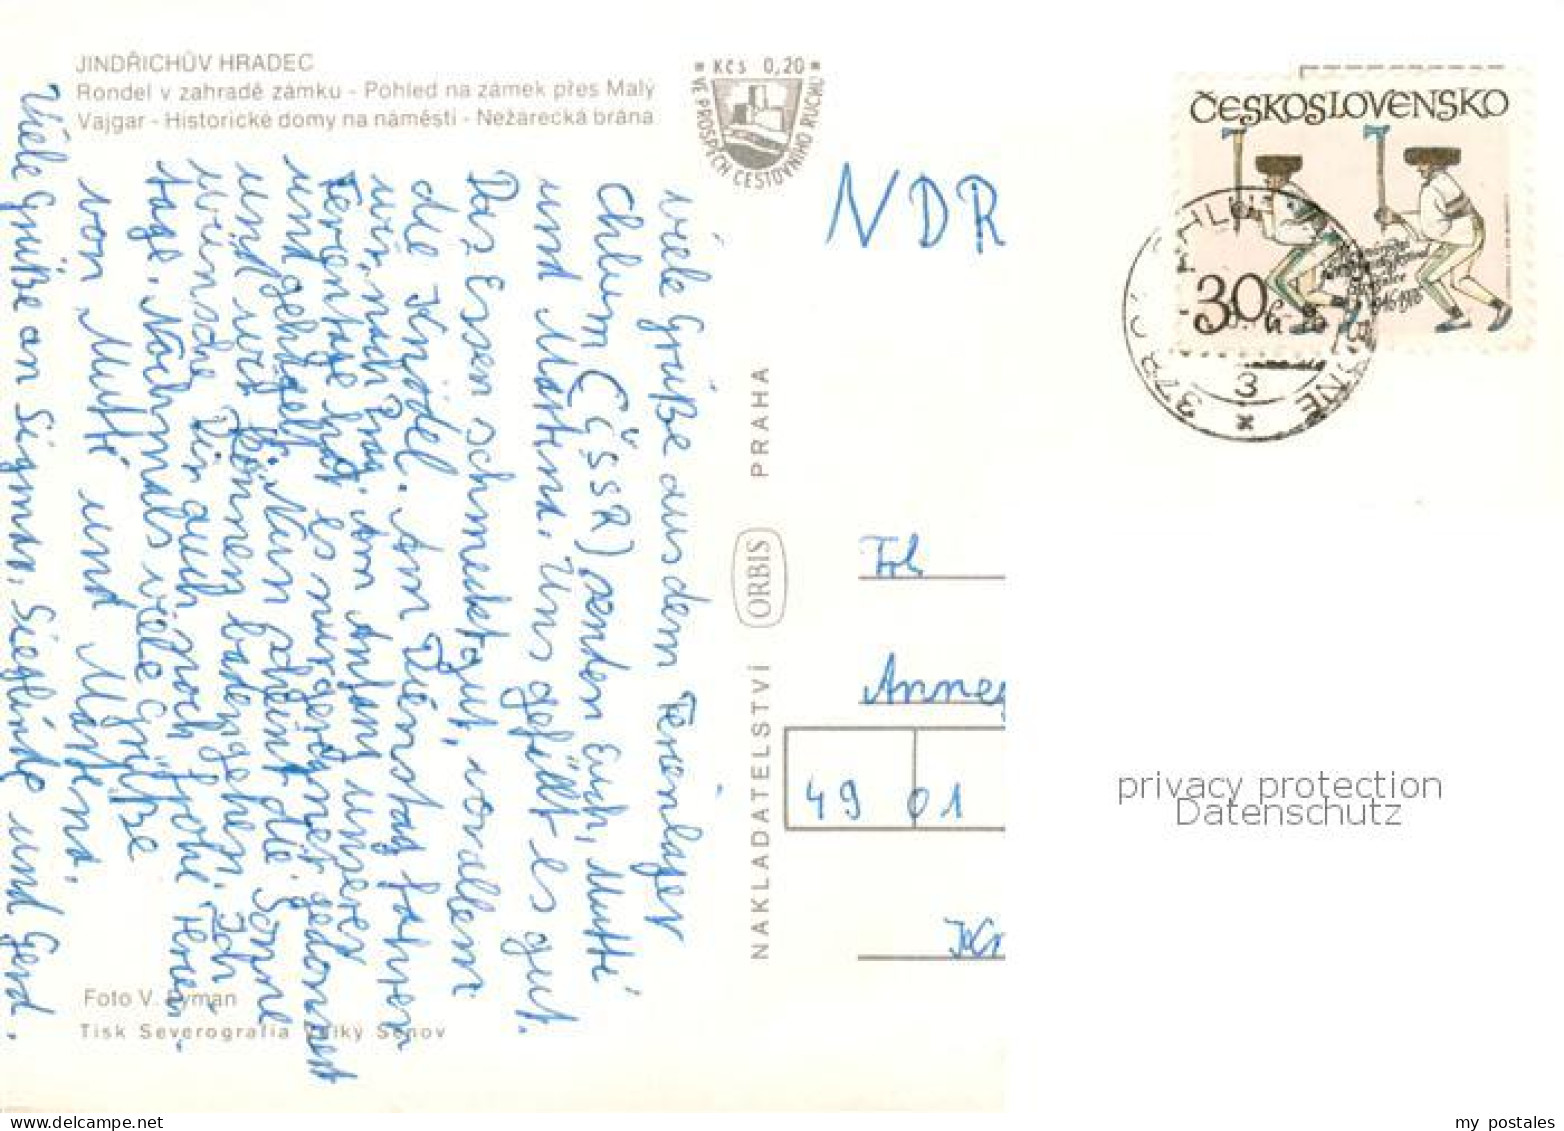 JINDŘICHŮV HRADEC
Rondel v zahradě zámku - Pohled na zámek přes Malý
Vajgar - Historické domy na náměstí - Nežárecká brána
Kčs 0,20
VE PROSPĚCH CESTOVNÍHO RUCHU
ČESKOSLOVENSKO
30
NDR
viele Grüße aus dem Ferienlager
Chlum (ČSSR) senden Euch, Mutti
und Martina. Uns gefällt es gut.
Das Essen schmeckt gut, vorallem
die Knödel. Am Dienstag fahren
wir nach Prag. Am Anfang unserer
Ferientage hat es nur geregnet gedonnert
und gehagelt. Nun scheint die Sonne
und wir können baden gehen. Ich
wünsche Dir auch noch frohe Ferien-
tage. Nochmals viele Grüße
von Mutti und Martina.
Viele Grüße an Sigmar, Sieglinde und Gerd.
Frl
Anne
49 01
Kr
NAKLADATELSTVÍ ORBIS PRAHA
Foto V. Hyman
Tisk Severografia Velký Šenov
privacy protection
Datenschutz
my postales